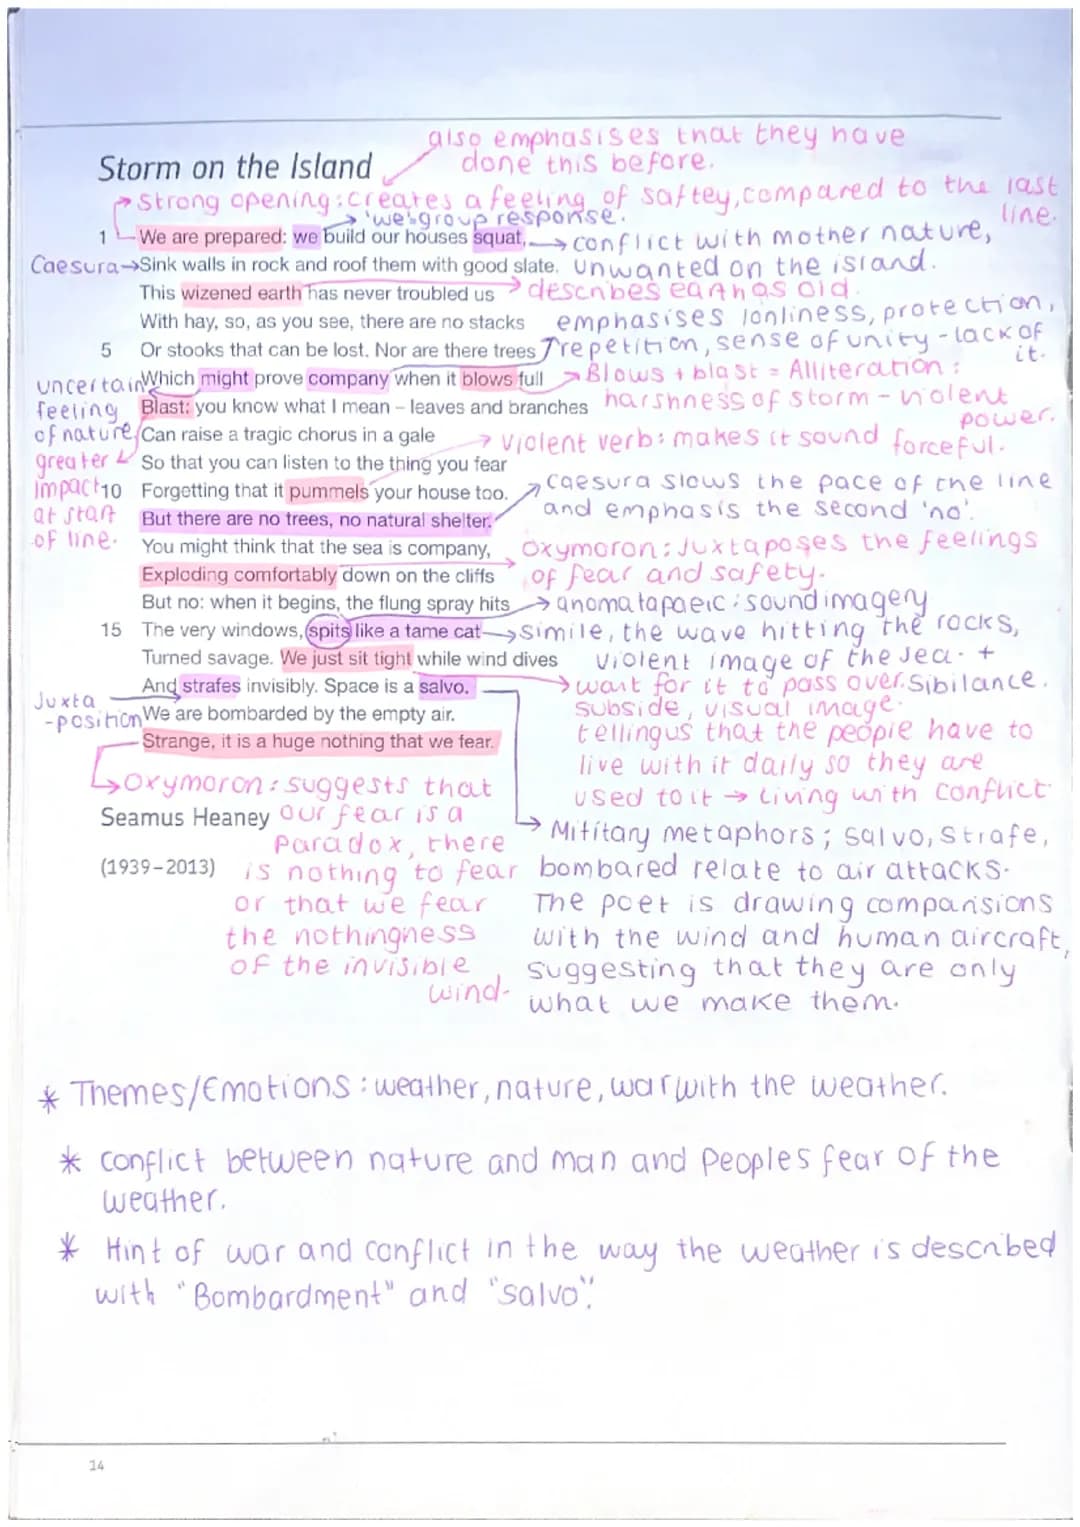 also emphasises that they have
done this before.
Storm on the Island
Strong opening: creates a feeling of saftey, compared to the last
line.
'we' group response.
1 We are prepared: we build our houses squat, → conflict with mother nature,
Caesura → Sink walls in rock and roof them with good slate. unwanted on the island.
This wizened earth has never troubled us → describes earth as old.
With hay, so, as you see, there are no stacks emphasises lonliness, protection,
5 Or stooks that can be lost. Nor are there trees repetition, sense of unity - lack of
it.
uncertain Which might prove company when it blows full → Blows + blast = Alliteration:
feeling Blast: you know what I mean – leaves and branches harshness of storm - violent
power.
of nature Can raise a tragic chorus in a gale → violent verb: makes it sound forceful.
greater So that you can listen to the thing you fear
impact 10 Forgetting that it pummels your house too. caesura slows the pace of the line
at start But there are no trees, no natural shelter. and emphasis the second 'no'.
of line. You might think that the sea is company, oxymoron: Juxtaposes the feelings
Exploding comfortably down on the cliffs of fear and safety.
But no: when it begins, the flung spray hits → anomatapaeic: sound imagery
15 The very windows, spits like a tame cat → simile, the wave hitting the rocks,
Turned savage. We just sit tight while wind dives violent image of the sea. +
And strafes invisibly. Space is a salvo. → wait for it to pass over. Sibilance.
Juxta
-position We are bombarded by the empty air. subside, visual image.
Strange, it is a huge nothing that we fear. telling us that the people have to
live with it daily so they are
used to it → living with conflict
→ oxymoron: suggests that
Seamus Heaney our fear is a
Paradox, there
(1939–2013) is nothing to fear
or that we fear
the nothingness
of the invisible
wind.
→ Military metaphors; salvo, strafe,
bombared relate to air attacks.
The poet is drawing comparisions
with the wind and human aircraft,
suggesting that they are only
what we make them.
* Themes/Emotions: weather, nature, war with the weather.
* conflict between nature and man and Peoples fear of the
weather.
* Hint of war and conflict in the way the weather is described
with "Bombardment" and "salvo".
14